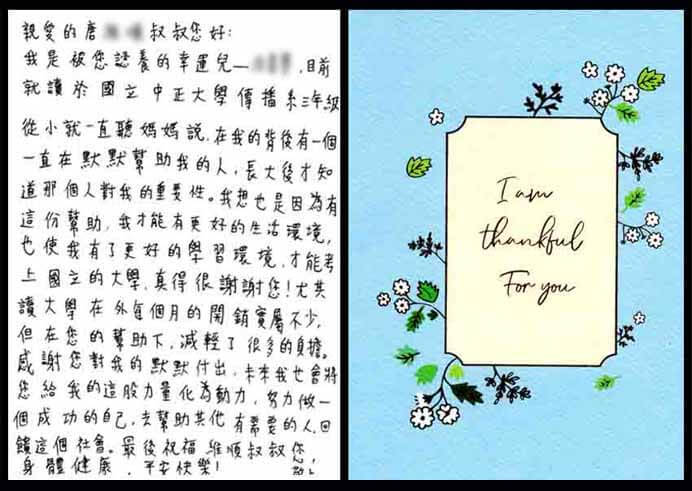 親愛的唐 叔叔您好:
我是被您認養的幸運兒— ,目前
就讀於國立中正大學傳播系三年級
從小就一直聽媽媽說,在我的背後有一個
一直在默默幫助我的人,長大後才知
道那個人對我的重要性。我想也是因為有
這份幫助,我才能有更好的生活環境,
也使我有了更好的學習環境,才能考
上國立的大學,真得很謝謝您!尤其
讀大學在外每個月的開銷實屬不少,
但在您的幫助下,減輕了很多的負擔。
感謝您對我的默默付出,未來我也會將
您給我的這股力量化為動力,努力做一
個成功的自己,去幫助其他有需要的人,回
饋這個社會。最後祝福維順叔叔您
身體健康,平安快樂!
I am
thankful
For you